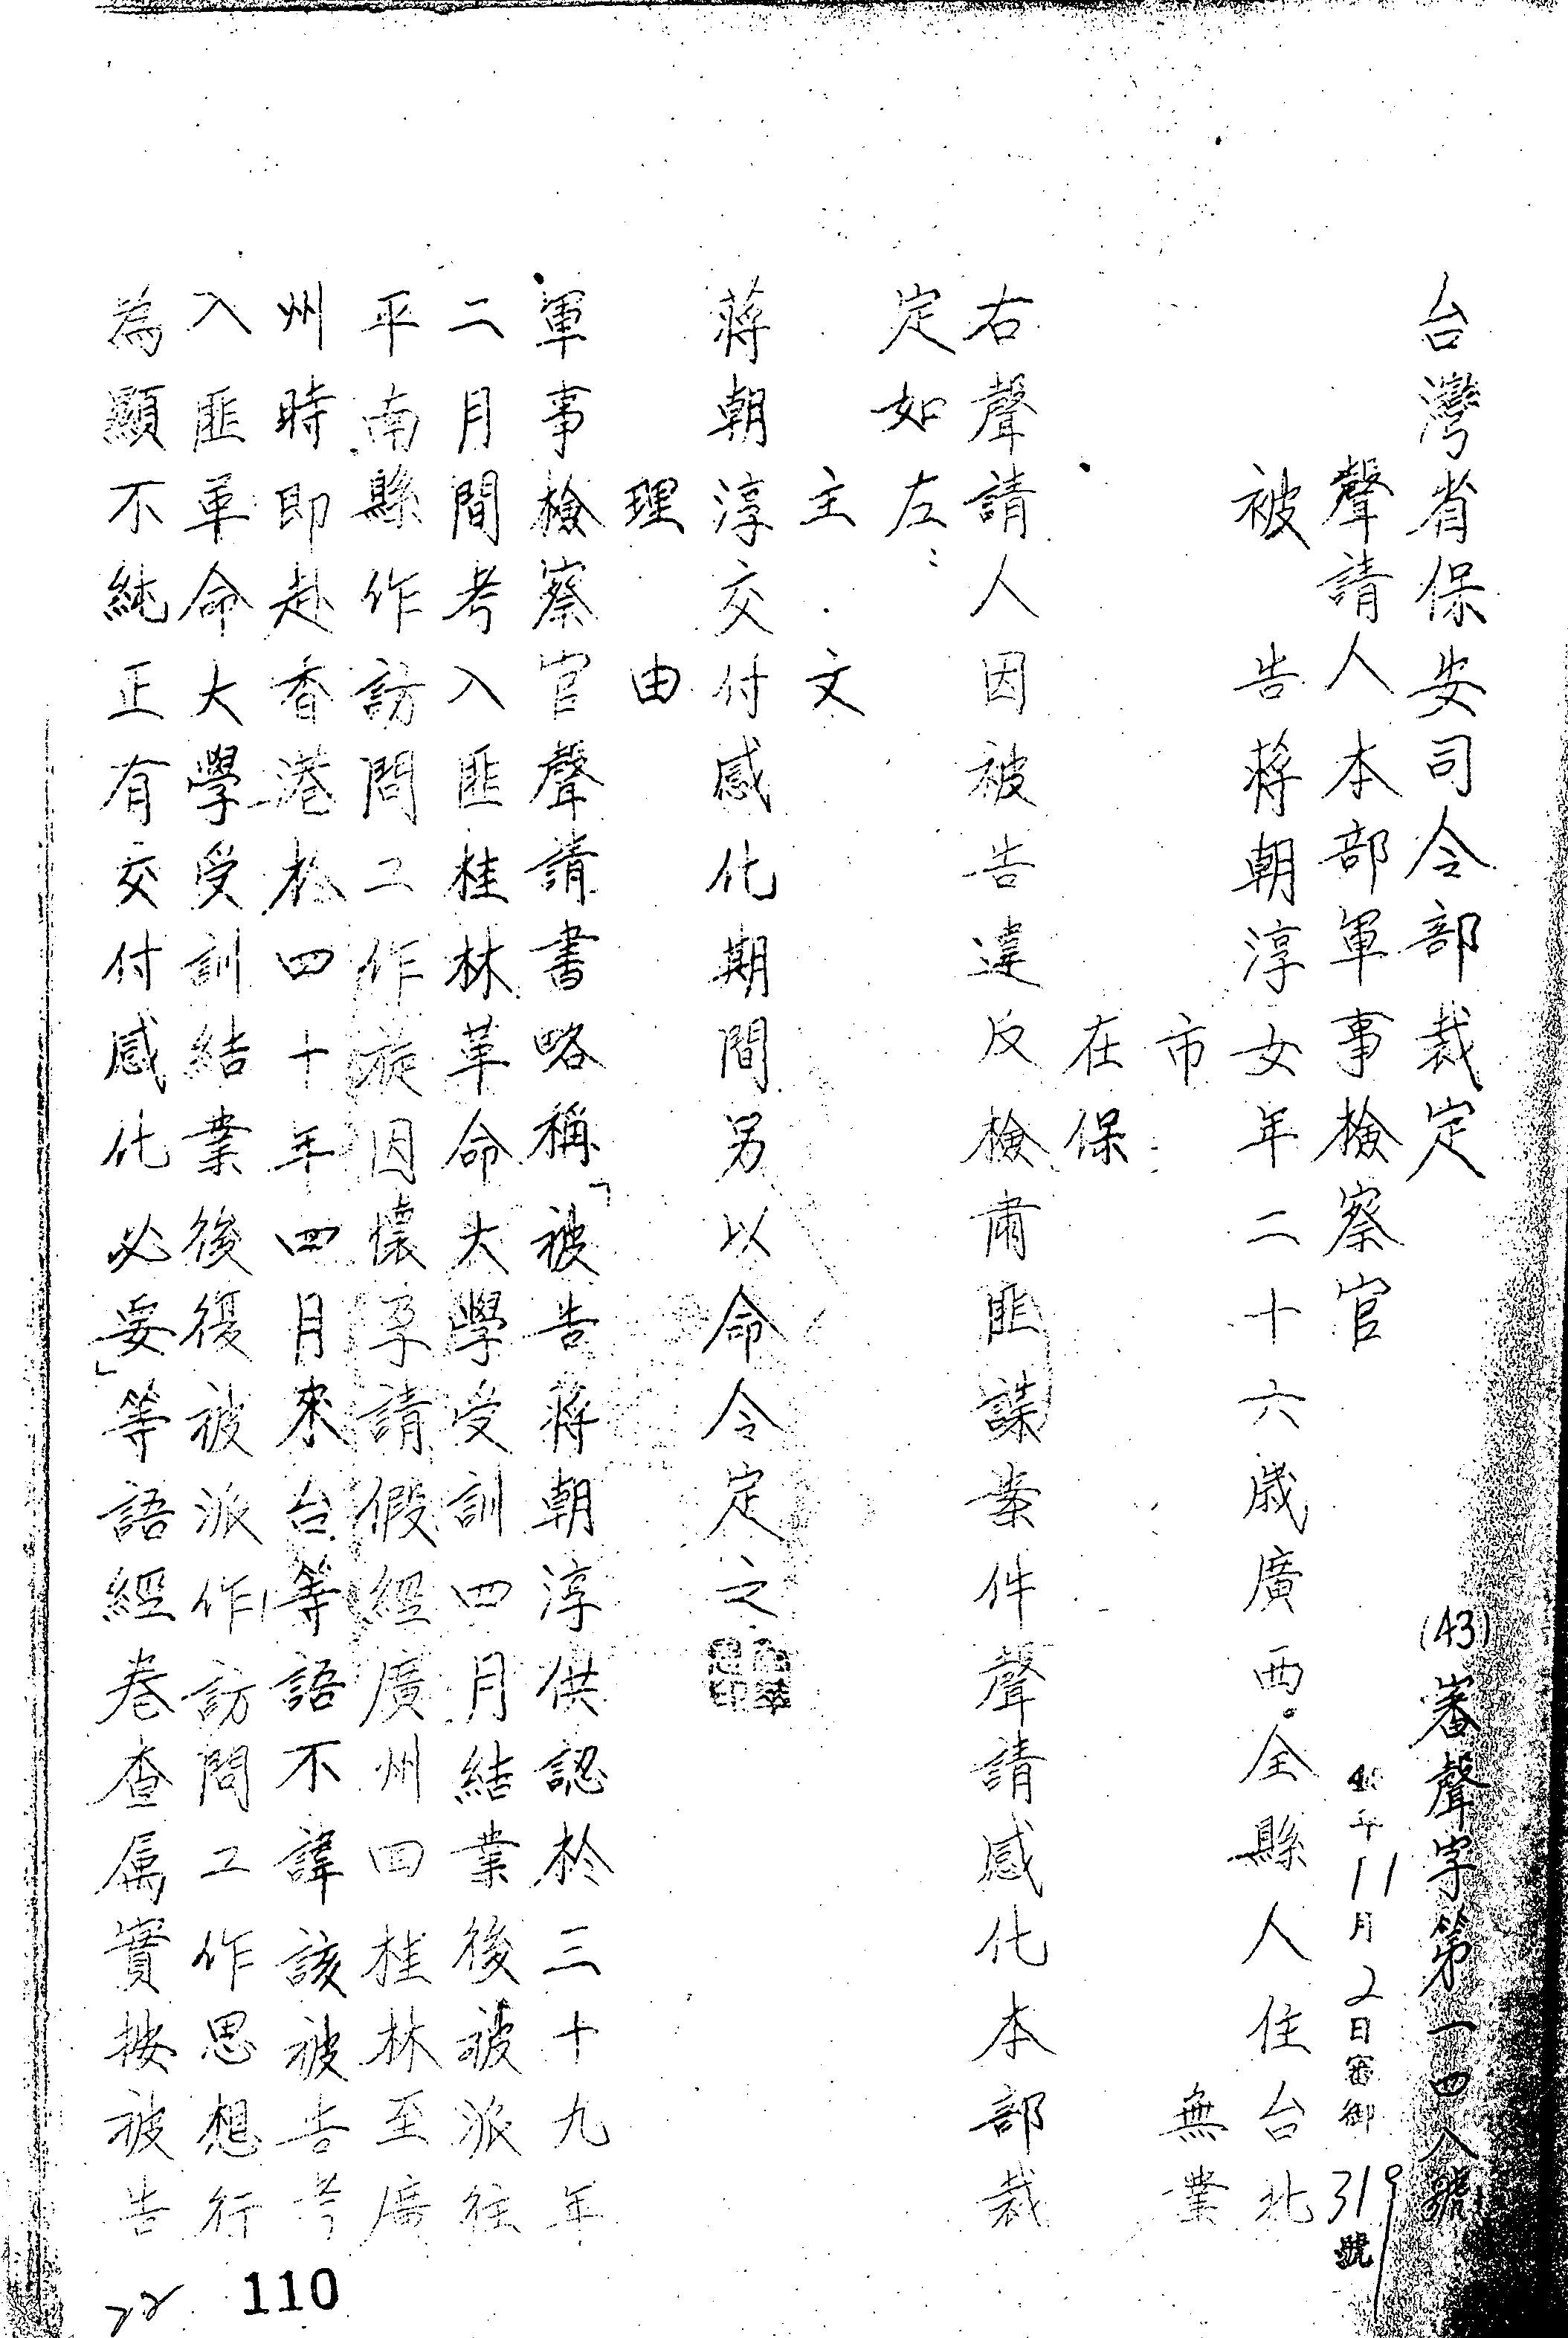 台灣省保安司令部裁定
(43)審聲字第一四八號
年11月2日審御319號
聲請人本部軍事檢察官
被告蔣朝淳女年二十六歲廣西全縣人住台北
市無業
在保
右聲請人因被告違反檢肅匪諜案件聲請感化本部裁
定如左：
主文
蔣朝淳交付感化期間另以命令定之
理由
軍事檢察官聲請書略稱「被告蔣朝淳供認於三十九年
二月間考入匪桂林革命大學受訓四月結業後被派往
平南縣作訪問工作旋因懷孕請假經廣州回桂林至廣
州時即赴香港於四十年四月來台等語不諱該被告考
入匪革命大學受訓結業後復被派作訪問工作思想行
為顯不純正有交付感化必要」等語經卷查屬實按被告
110